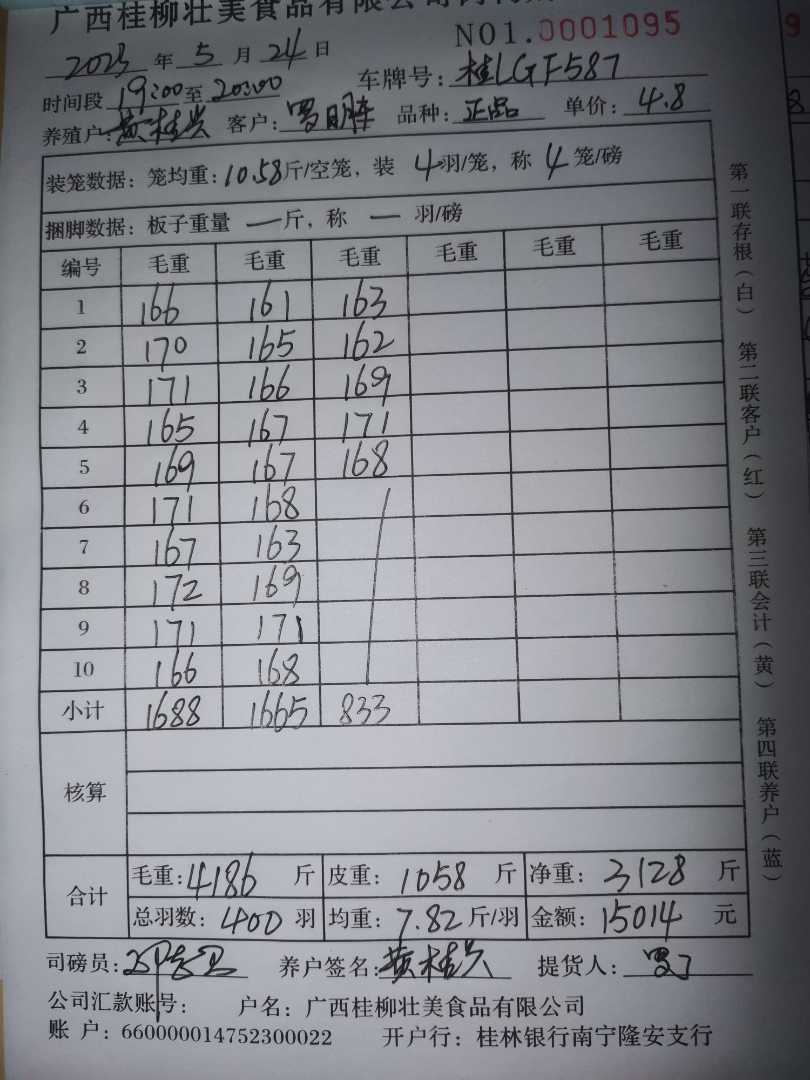 广西桂柳壮美食品有限公司
NO1.0001095
2023 年 5 月 24 日
时间段 19:00 至 20:00 车牌号: 桂LGF587
养殖户: 黄桂兴 客户: 罗明 品种: 正品 单价: 4.8
装笼数据: 笼均重: 10.58 斤/空笼, 装 4 羽/笼, 称 4 笼/磅
捆脚数据: 板子重量 — 斤, 称 — 羽/磅
编号 毛重 毛重 毛重 毛重 毛重 毛重
1 166 161 163
2 170 165 162
3 171 166 169
4 165 167 171
5 169 167 168
6 171 168
7 167 163
8 172 169
9 171 171
10 166 168
小计 1688 1665 833
核算
合计 毛重: 4186 斤 皮重: 1058 斤 净重: 3128 斤
总羽数: 400 羽 均重: 7.82 斤/羽 金额: 15014 元
司磅员: 养户签名: 黄桂兴 提货人:
公司汇款账号: 户名: 广西桂柳壮美食品有限公司
账 户: 660000014752300022 开户行: 桂林银行南宁隆安支行
第一联存根(白) 第二联客户(红) 第三联会计(黄) 第四联养户(蓝)